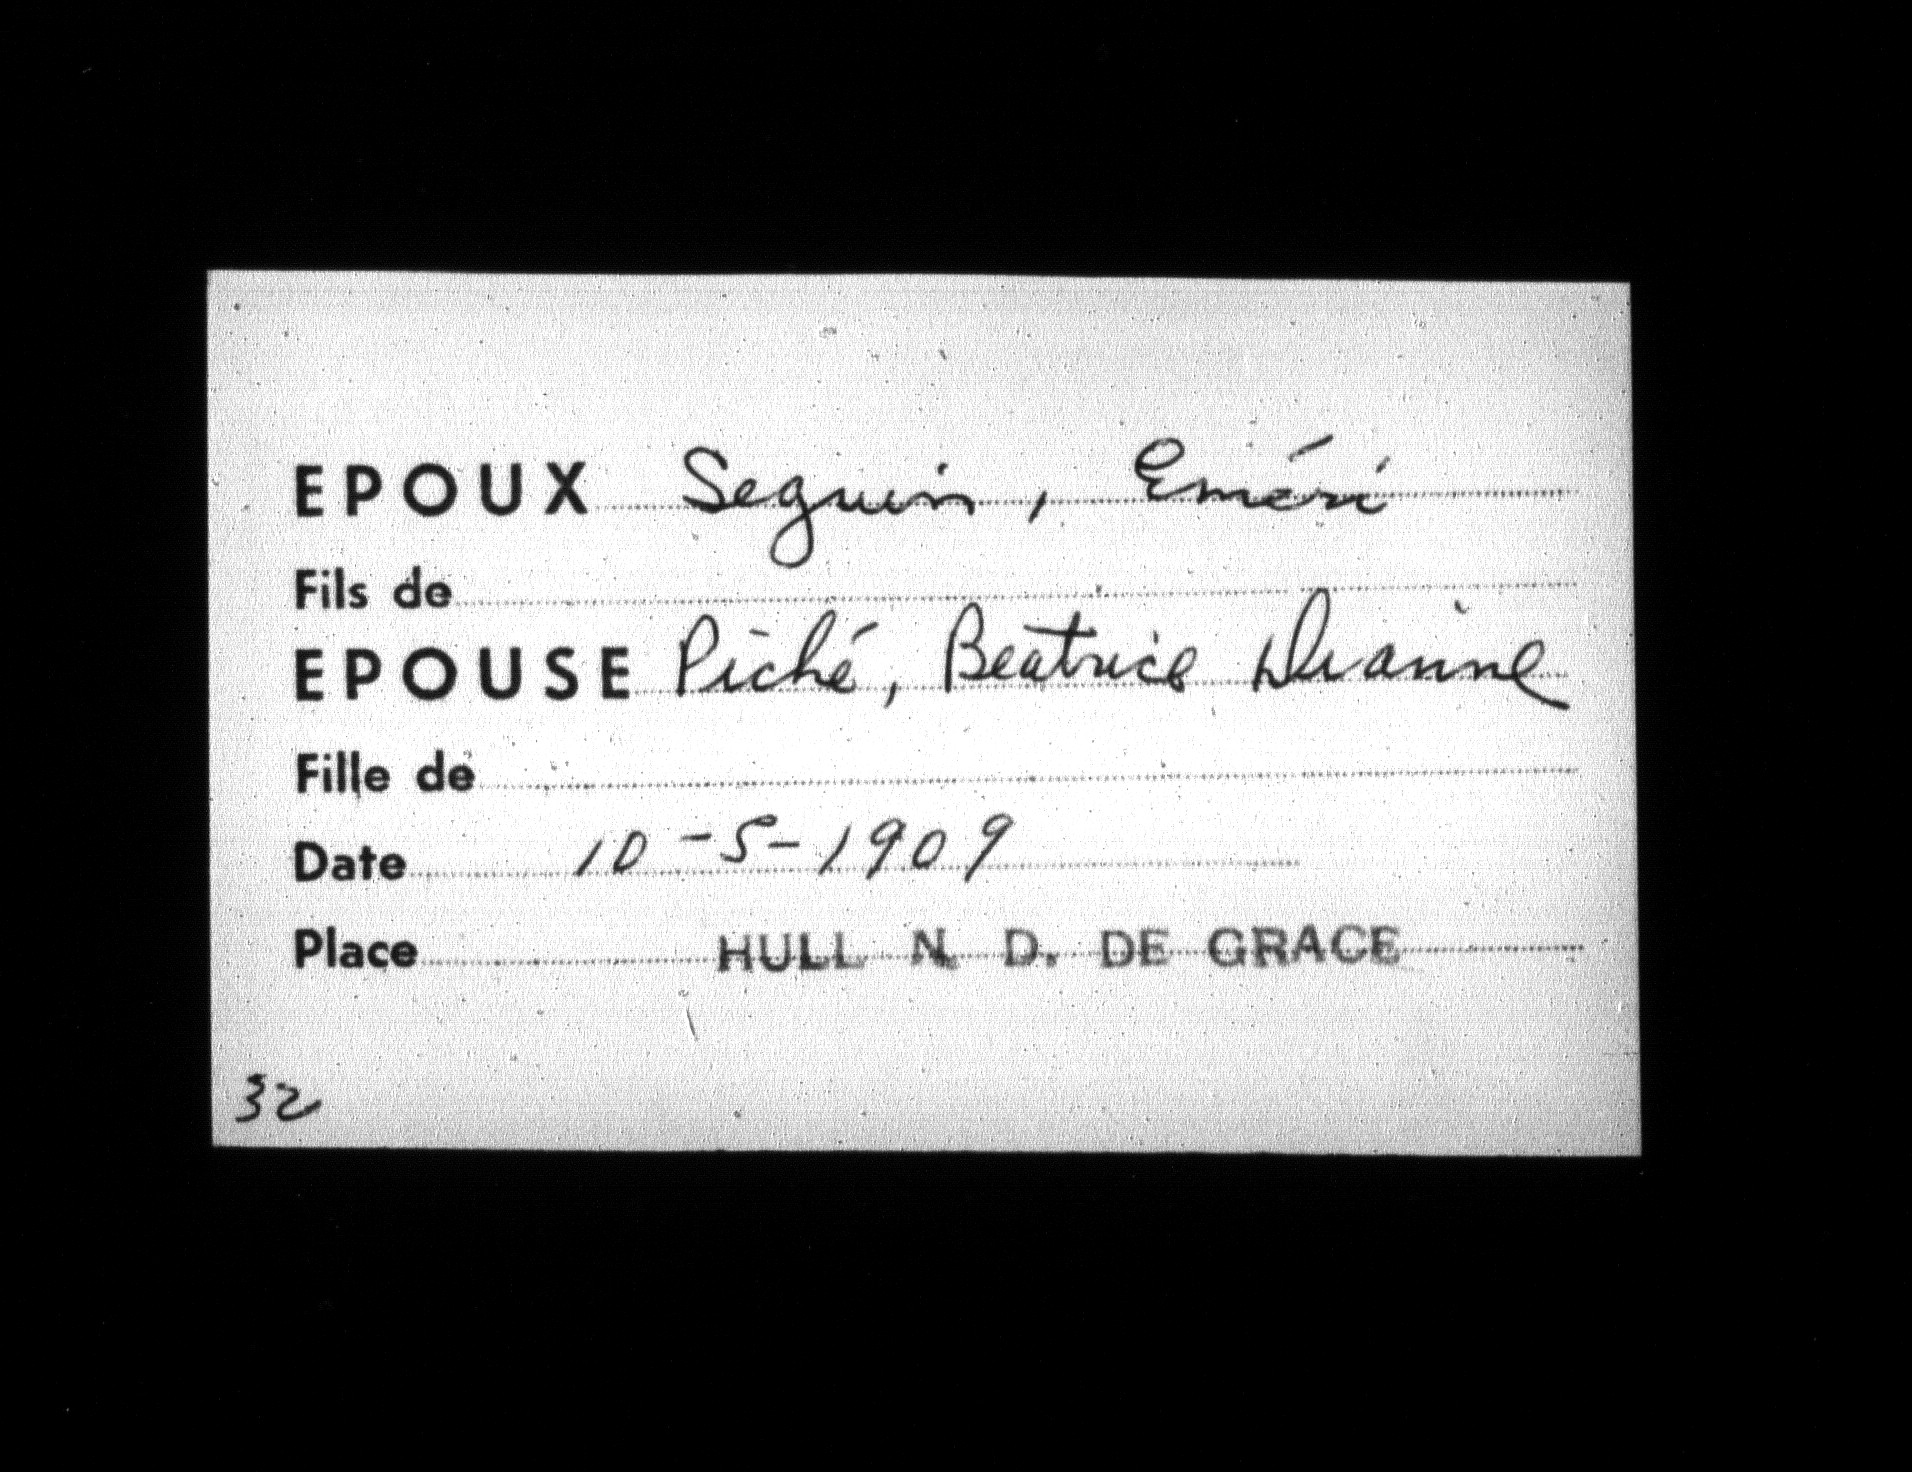 EPOUX Seguin, Eméri
Fils de
EPOUSE Piché, Beatrice Dianne
Fille de
Date 10-5-1909
Place HULL N. D. DE GRACE
32